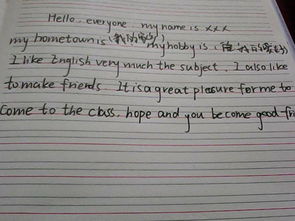 Hello, everyone, my name is xxx
my hometown is (我的家乡) my hobby is (
I like English very much the subject. I also like
to make friends It is a great pleasure for me to
Come to the class, hope and you become good fri